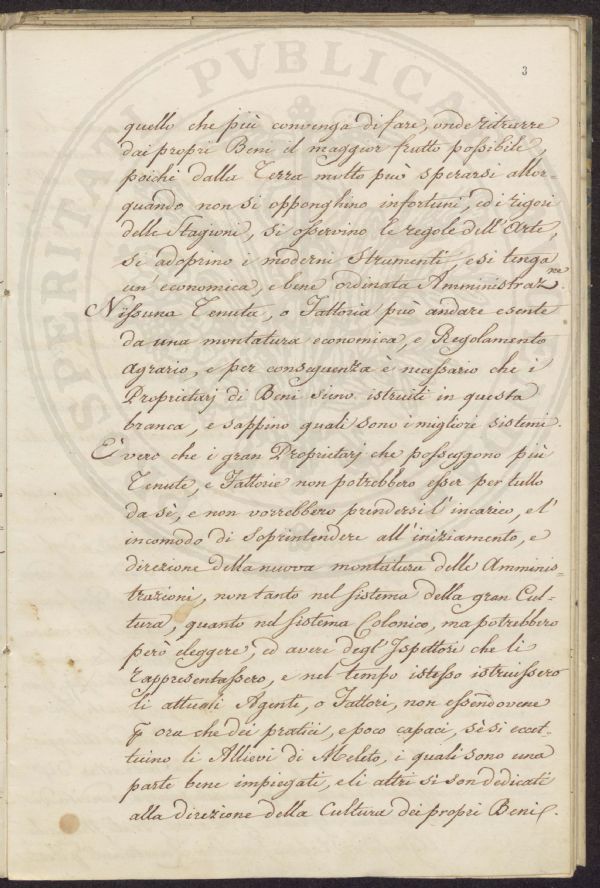 3
quello che più convenga di fare, onde ritrarre
dai propri Beni il maggior frutto possibile,
poichè dalla Terra molto può sperarsi allor-
quando non si opponghino infortuni, ed i rigori
delle Stagioni, si osservino le regole dell'Arte,
si adoprino i moderni Strumenti, e si tenga
un' economica, e bene ordinata Amministraz.ne
Nissuna Tenuta, o Fattoria può andare esente
da una montatura economica, e Regolamento
Agrario, e per conseguenza è necessario che i
Proprietarj di Beni sieno istruiti in questa
branca, e sappino quali sono i migliori sistemi.
È vero che i gran Proprietarj che posseggono più
Tenute, e Fattorie non potrebbero esser per tutto
da sè, e non vorrebbero prendersi l'incarico, e l'
incomodo di Soprintendere all'iniziamento, e
direzione della nuova montatura delle Amminis=
trazioni, non tanto nel Sistema della gran Cul=
tura, quanto nel Sistema Colonico, ma potrebbero
però eleggere, ed avere degl'Ispettori che li
rappresentassero, e nel tempo istesso istruissero
li attuali Agenti, o Fattori, non essendovene
p ora che dei pratici, e poco capaci, sè si eccet-
tuino li Allievi di Meleto, i quali sono una
parte bene impiegati, e li altri si son dedicati
alla direzione della Cultura dei propri Beni.
PROSPERITATI PVBLICAE